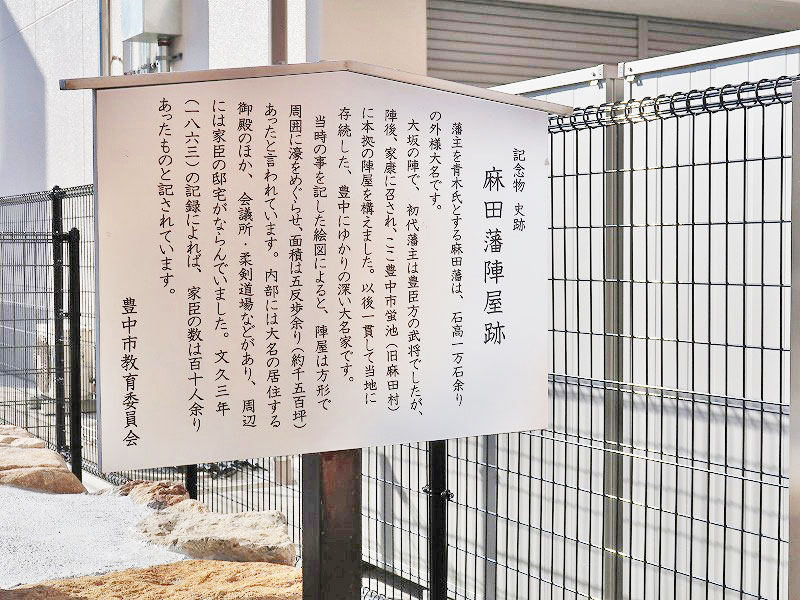 記念物 史跡
麻田藩陣屋跡
藩主を青木氏とする麻田藩は、石高一万石余り
の外様大名です。
大坂の陣で、初代藩主は豊臣方の武将でしたが、
陣後、家康に召され、ここ豊中市蛍池(旧麻田村)
に本拠の陣屋を構えました。以後一貫して当地に
存続した、豊中にゆかりの深い大名家です。
当時の事を記した絵図によると、陣屋は方形で
周囲に濠をめぐらせ、面積は五反歩余り(約千五百坪)
あったと言われています。内部には大名の居住する
御殿のほか、会議所・柔剣道場などがあり、周辺
には家臣の邸宅がならんでいました。文久三年
(一八六三)の記録によれば、家臣の数は百十人余り
あったものと記されています。
豊中市教育委員会